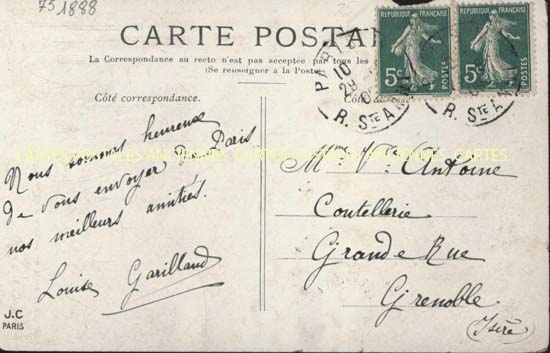 751888
CARTE POSTA
La Correspondance au recto n'est pas acceptée par tous les
(Se renseigner à la Poste
Côté correspondance.
Côté adresse
REPUBLIQUE FRANÇAISE
5c
POSTES
REPUBLIQUE FRANÇAISE
5c
POSTES
PARIS
R. STE ANNE
R. STE ANNE
CARTES POSTALES ANCIENNES CARTES POSTALES ANCIENNES CARTES
Nous sommes heureuse
de vous envoyer de Paris
nos meilleurs amitiés.
Louise Garilland
Mme Vve Antoine
Coutellerie
Grande Rue
Grenoble
(Isère)
J.C
PARIS